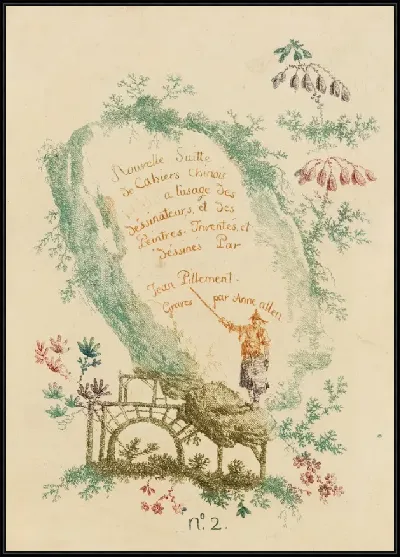 Nouvelle Suitte
de Cahiers Chinois
a l'usage des
dessinateurs, et des
Peintres. Inventés, et
déssinés Par
Jean Pillement.
Gravés par Anne allen
n.º 2.